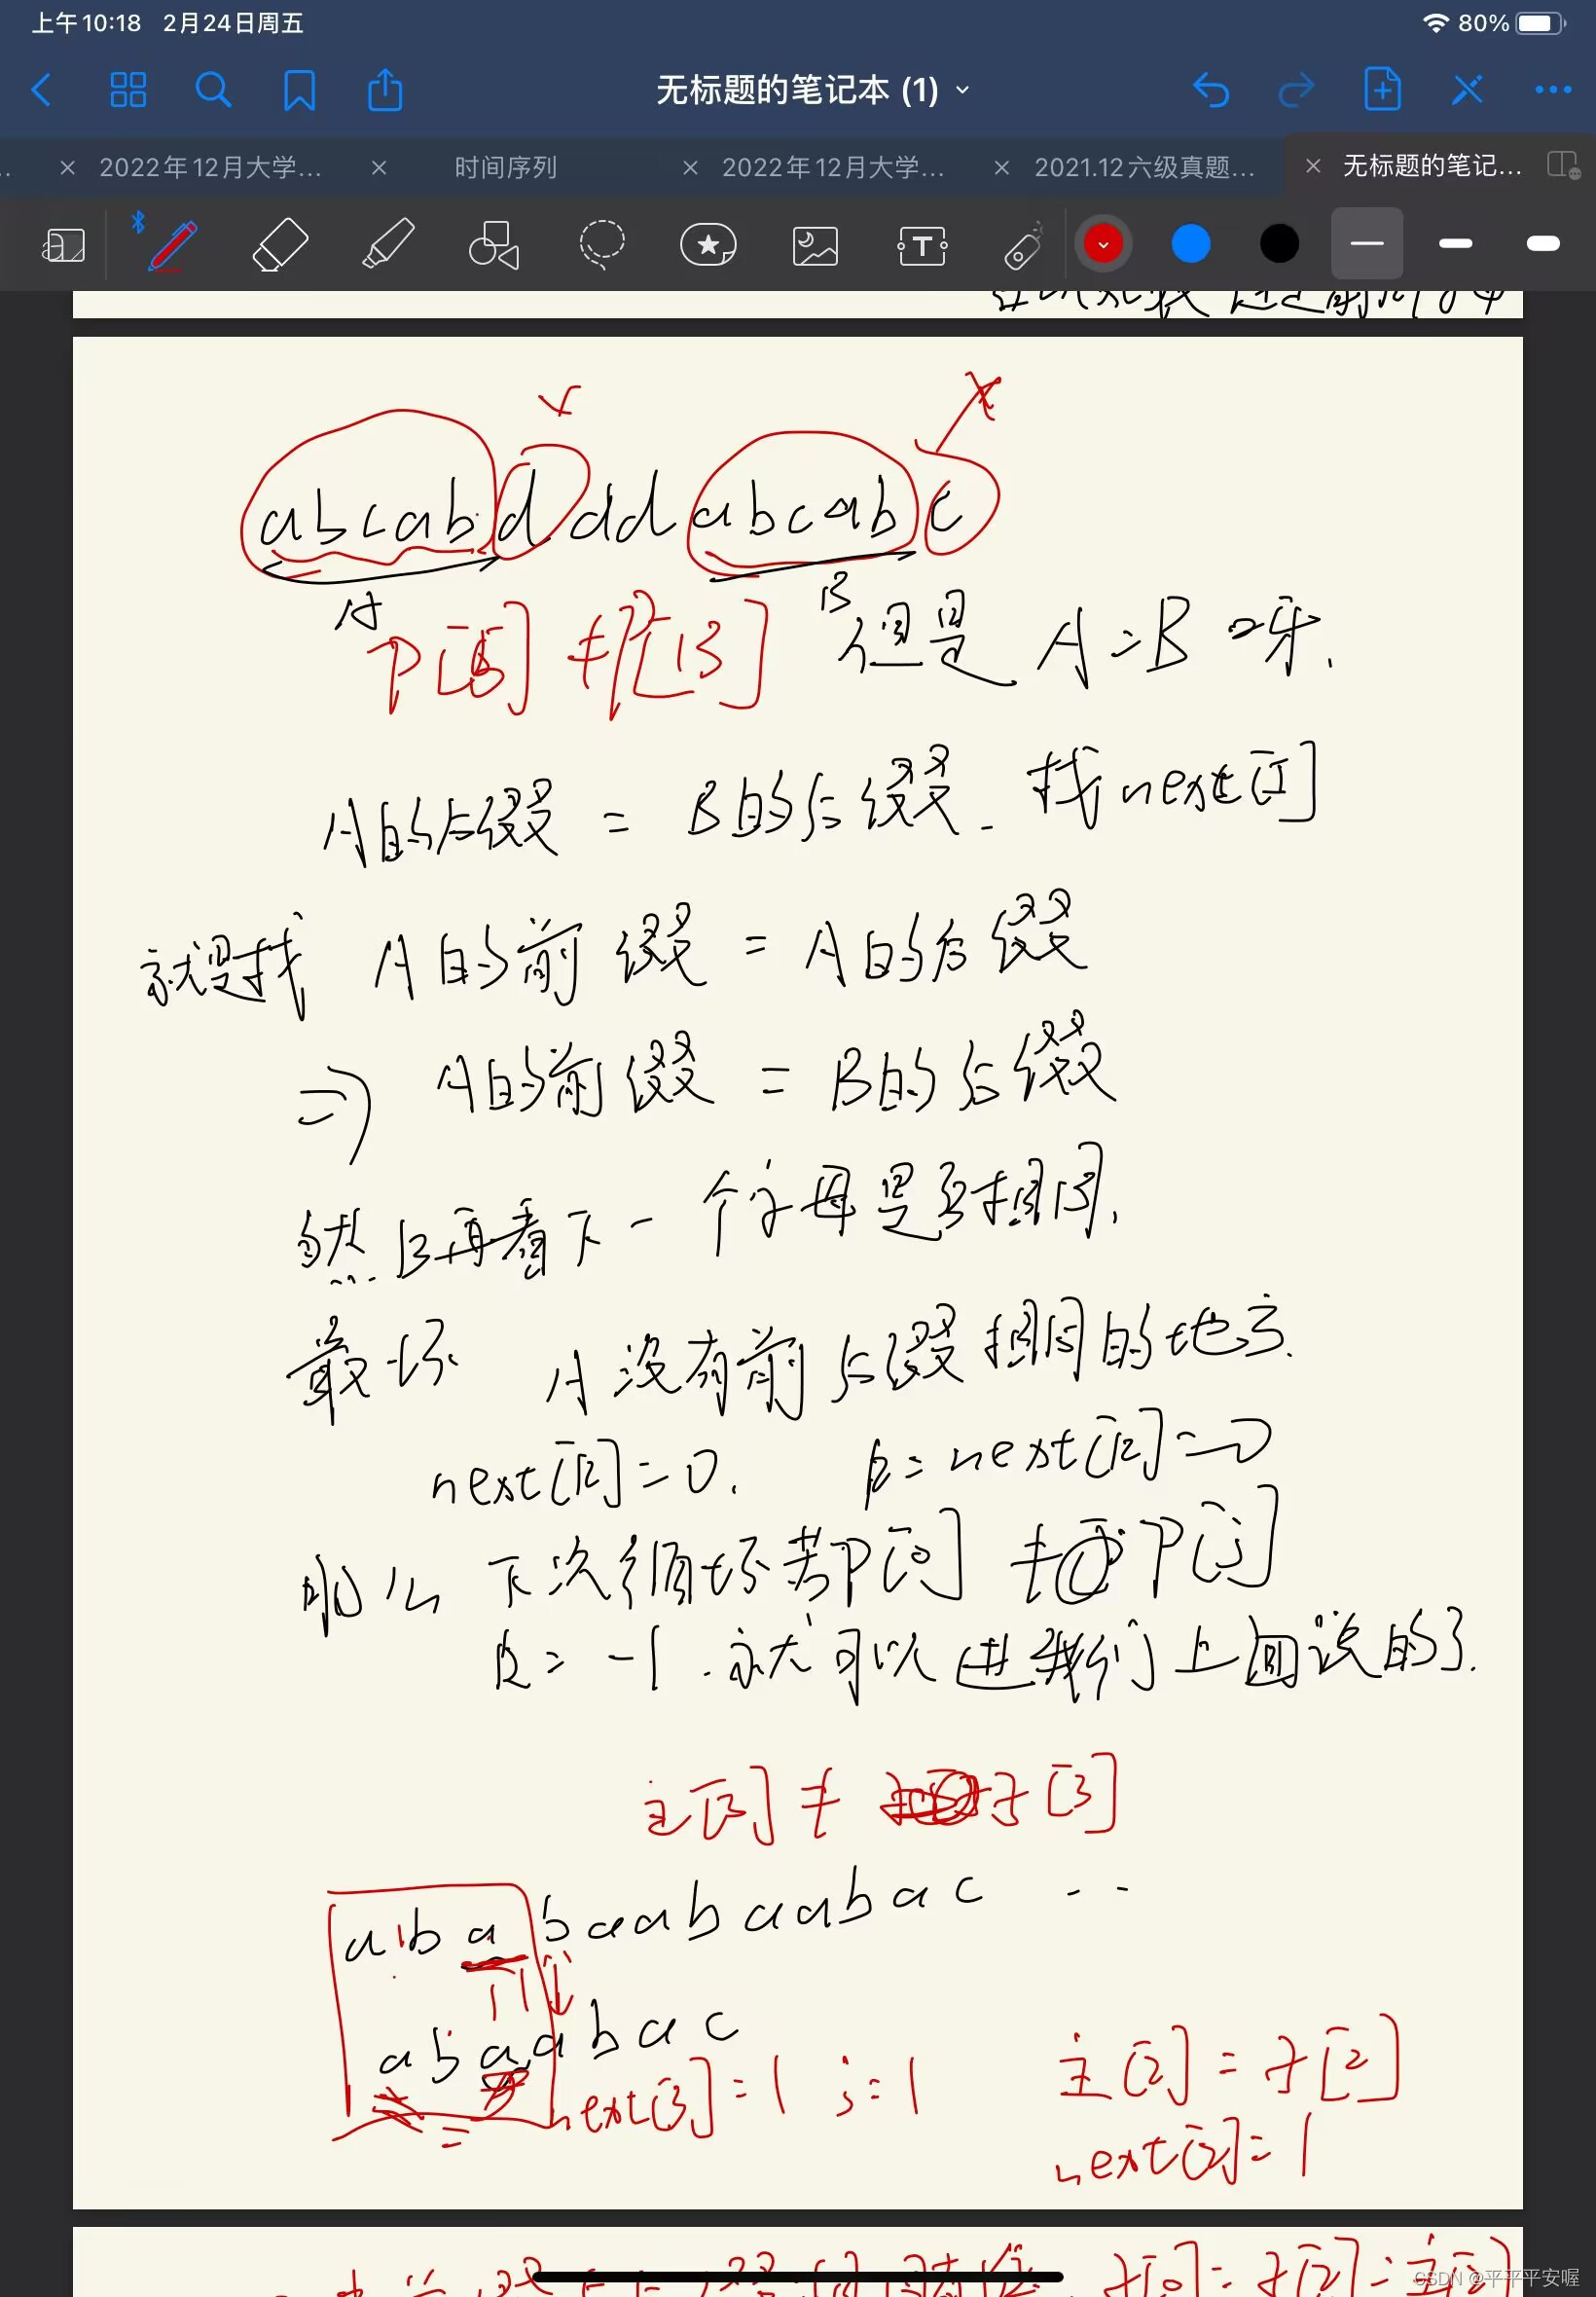 上午10:18 2月24日周五 80%
无标题的笔记本 (1)
2022年12月大学... 时间序列 2022年12月大学... 2021.12六级真题... 无标题的笔记...
abcabdddabcabc
A B
P[5] ≠ P[13] 但是 A=B 呀.
A的后缀 = B的后缀. 找next[]
就是找 A的前缀 = A的后缀
=> A的前缀 = B的后缀
然后再看下一个字母是否相同.
最坏 A没有前后缀相同的地方.
next[k]=0. k=next[k]=0
那么 下次循环若P[0] ≠ P[j]
k = -1. 就可以进我们上面说的了.
主[3] ≠ 子[3]
ababaabaabac ..
abaabac
next[3]=1 j=1
主[2] = 子[2]
next[2]=1
CSDN @平平平安喔